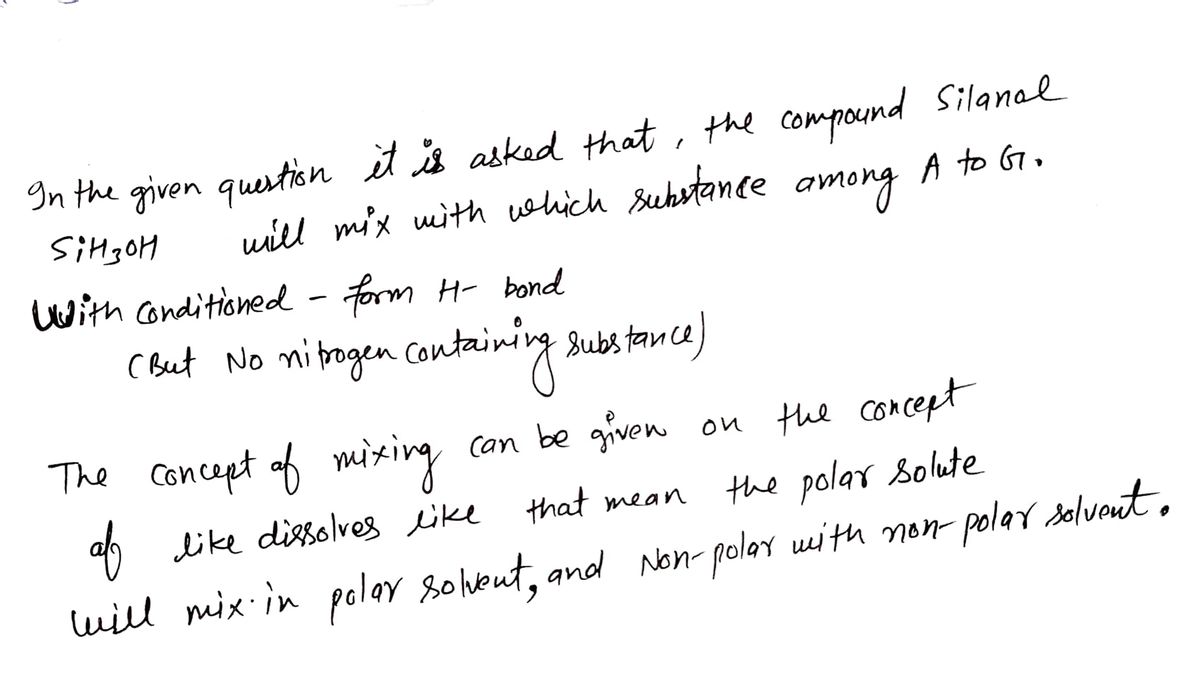 In the given question it is asked that, the compound Silanal
SiH3OH will mix with which substance among A to G.
With Conditioned - form H- bond
(But No nitrogen containing substance)
The concept of mixing can be given on the concept
of like dissolves like that mean the polar solute
will mix in polar solvent, and Non-polar with non-polar solvent.